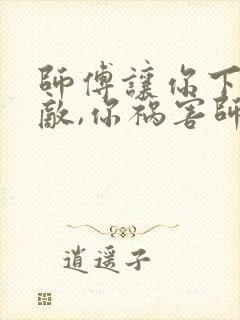 師傅讓你下
敵,你禍害師
逍遥子